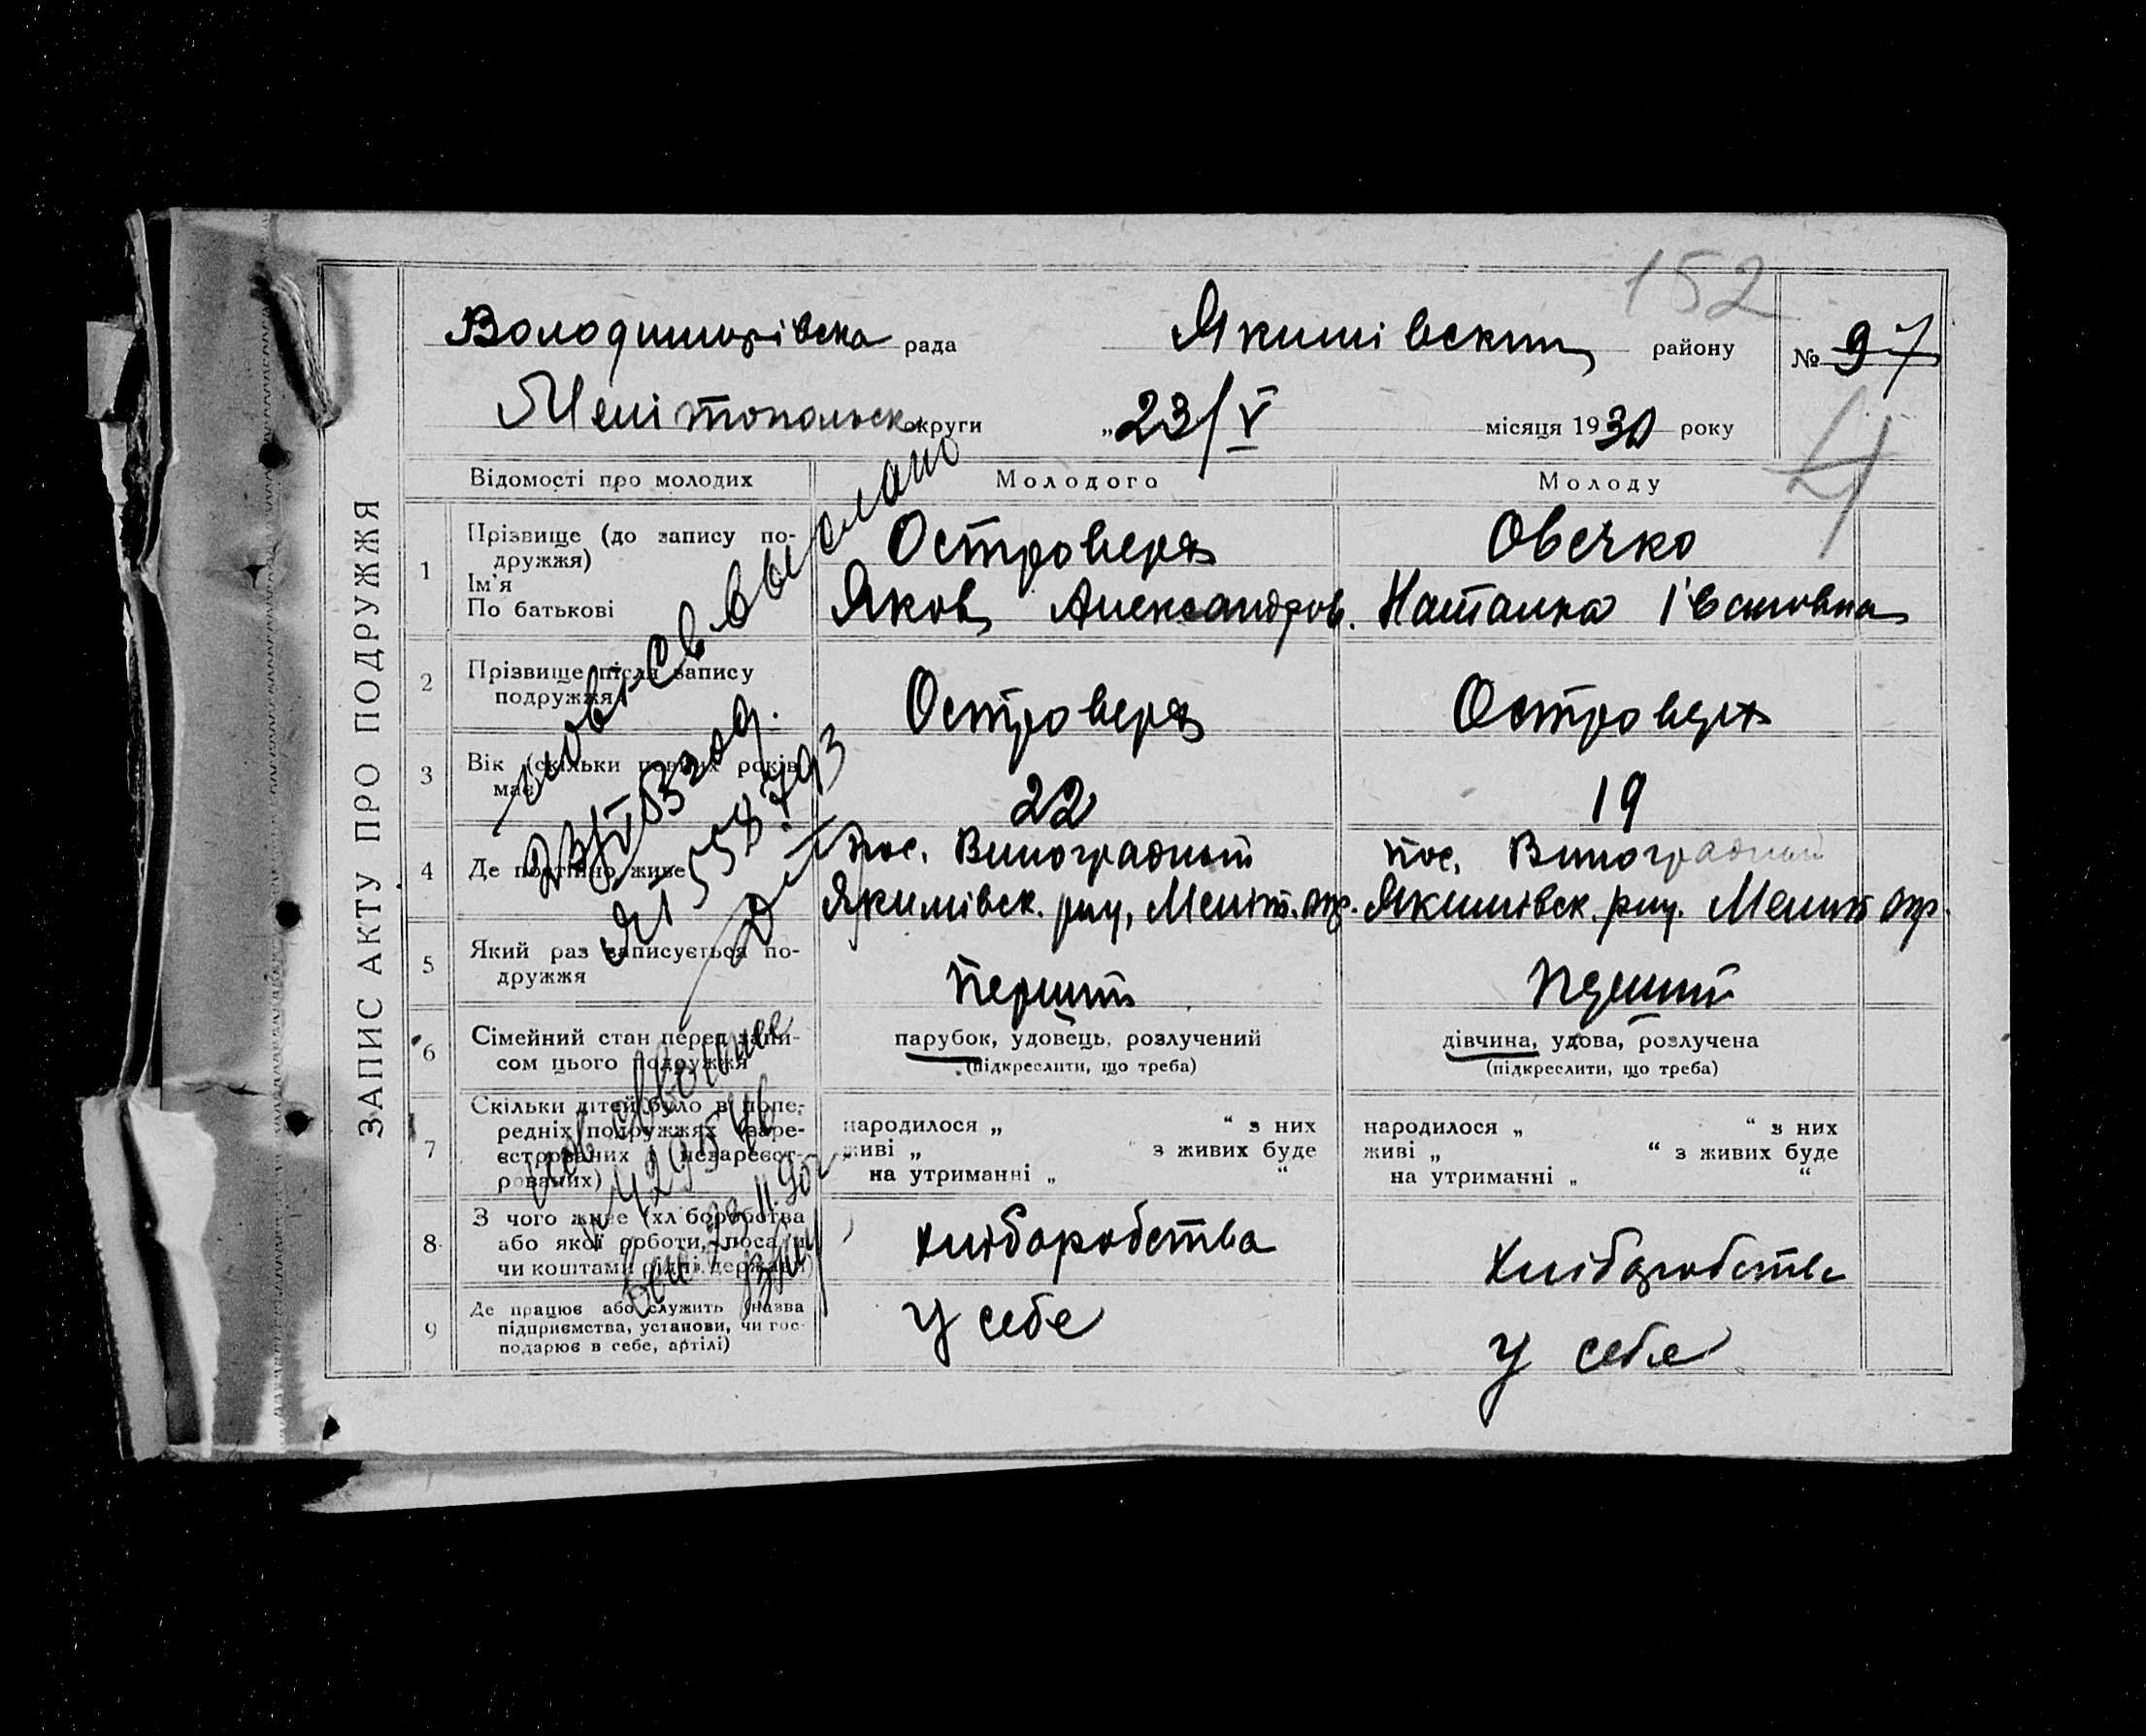 152
Володимирівска рада Якимівский району № 97
Мелітопольск. округи „23/V місяця 1930 року
4
ЗАПИС АКТУ ПРО ПОДРУЖЖЯ
Відомості про молодих Молодого Молоду
1 Прізвище (до запису по-
дружжя)
Ім'я
По батькові
Островерх Овечко
Яков Александров. Наталка Івановна
2 Прізвище після запису
подружжя
Островерх Островерх
3 Вік (скільки повних років
має)
22 19
4 Де постійно живе
пос. Виноградний пос. Виноградний
Якимівск. рну, Меліт. окр. Якимівск. рну. Меліт окр.
5 Який раз записується по-
дружжя
перший перший
6 Сімейний стан перед запи-
сом цього подружжя
парубок, удовець, розлучений дівчина, удова, розлучена
(підкреслити, що треба) (підкреслити, що треба)
7 Скільки дітей було в попе-
редніх подружжях (заре-
єстрованих і незареєст-
рованих)
народилося „ “ з них народилося „ “ з них
живі „ “ з живих буде живі „ “ з живих буде
на утриманні „ “ на утриманні „ “
8 З чого живе (хліборобства
або якої роботи, посади
чи коштами рідні, держави)
хліборобства хліборобства
9 Де працює або служить (назва
підприємства, установи, чи гос-
подарює в себе, артілі)
У себе У себе
св выслано
ЯГ 558793